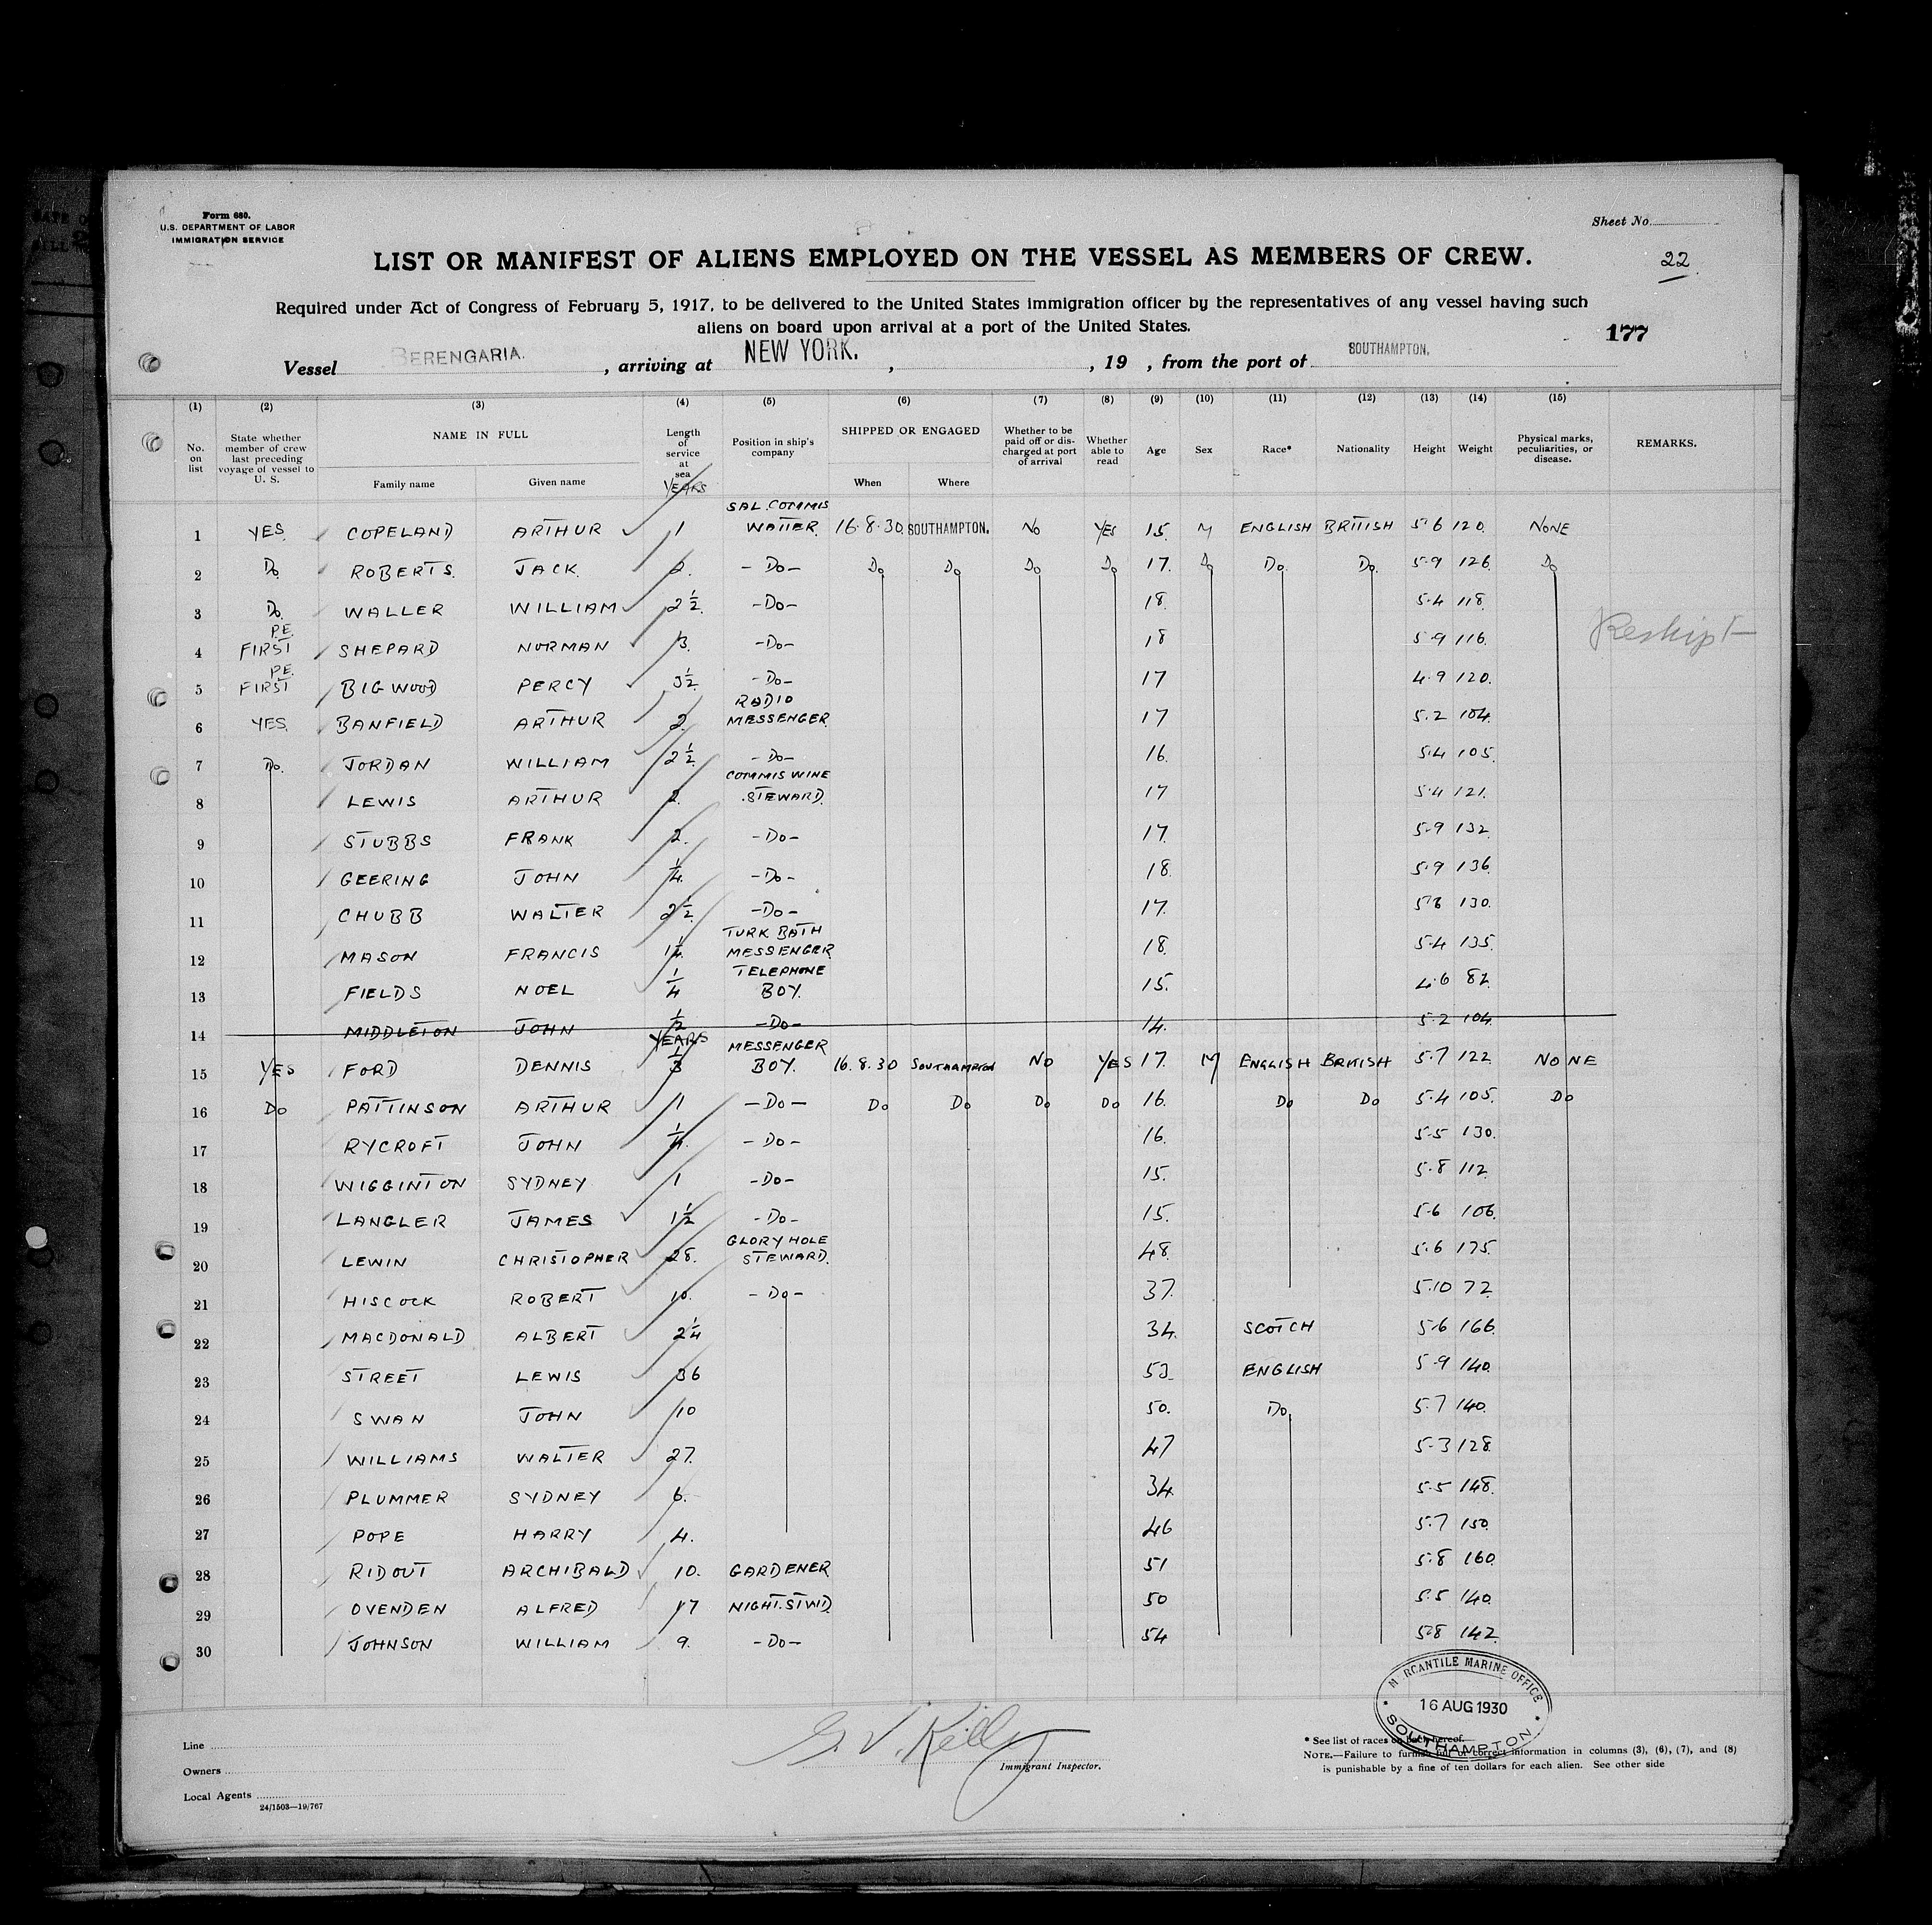 Form 680.
U.S. DEPARTMENT OF LABOR
IMMIGRATION SERVICE
Sheet No.
LIST OR MANIFEST OF ALIENS EMPLOYED ON THE VESSEL AS MEMBERS OF CREW.
22
Required under Act of Congress of February 5, 1917, to be delivered to the United States immigration officer by the representatives of any vessel having such
aliens on board upon arrival at a port of the United States.
177
Vessel BERENGARIA. , arriving at NEW YORK. , , 19 , from the port of SOUTHAMPTON.
(1) (2) (3) (4) (5) (6) (7) (8) (9) (10) (11) (12) (13) (14) (15)
No. on list State whether member of crew last preceding voyage of vessel to U. S. NAME IN FULL Family name Given name Length of service at sea YEARS Position in ship's company SHIPPED OR ENGAGED When Where Whether to be paid off or discharged at port of arrival Whether able to read Age Sex Race* Nationality Height Weight Physical marks, peculiarities, or disease. REMARKS.
1 YES COPELAND ARTHUR 1 SAL. COMMIS WAITER. 16.8.30 SOUTHAMPTON. NO YES 15. M ENGLISH BRITISH 5.6 120. NONE
2 Do ROBERTS. JACK. 2. -Do- Do Do Do Do 17. Do Do. Do. 5.9 126. Do
3 Do. WALLER WILLIAM 2½. -Do- 18. 5.4 118.
4 P.E. FIRST SHEPARD NORMAN 3. -Do- 18 5.9 116. Reshipt
5 P.E. FIRST BIGWOOD PERCY 3½. -Do- 17 4.9 120.
6 YES. BANFIELD ARTHUR 2. RADIO MESSENGER. 17 5.2 104.
7 Do. JORDAN WILLIAM 2½. -Do- 16. 5.4 105.
8 LEWIS ARTHUR 2. COMMIS WINE STEWARD. 17 5.4 121.
9 STUBBS FRANK 2. -Do- 17. 5.9 132.
10 GEERING JOHN ¼. -Do- 18. 5.9 136.
11 CHUBB WALTER 2½. -Do- 17. 130.
12 MASON FRANCIS 1¼. TURK BATH MESSENGER 18. 5.4 135.
13 FIELDS NOEL ¼ TELEPHONE BOY. 15. 4.6 82.
14 MIDDLETON JOHN ½ -Do- 14. 5.2 104.
YEARS
15 YES FORD DENNIS MESSENGER BOY. 16.8.30 SOUTHAMPTON NO YES 17. M ENGLISH BRITISH 5.7 122 NONE
16 DO PATTINSON ARTHUR 1 -Do- Do Do Do Do 16. Do Do 5.4 105. Do
17 RYCROFT JOHN ¼. -Do- 16. 5.5 130.
18 WIGGINTON SYDNEY 1 -Do- 15. 5.8 112.
19 LANGLER JAMES 1½ -Do- 15. 5.6 106.
20 LEWIN CHRISTOPHER 28. GLORY HOLE STEWARD. 48. 5.6 175.
21 HISCOCK ROBERT 10. -Do- 37. 5.10 72
22 MACDONALD ALBERT 2¼ 34. SCOTCH 5.6 166.
23 STREET LEWIS 36 53. ENGLISH 5.9 140.
24 SWAN JOHN 10 50. Do. 5.7 140.
25 WILLIAMS WALTER 27. 47 5.3 128.
26 PLUMMER SYDNEY 6. 34. 5.5 148.
27 POPE HARRY 4. 46 5.7 150.
28 RIDOUT ARCHIBALD 10. GARDENER 51 5.8 160.
29 OVENDEN ALFRED 17 NIGHT.STWD. 50 5.5 140.
30 JOHNSON WILLIAM 9. -Do- 54 5.8 142.
MERCANTILE MARINE OFFICE
16 AUG 1930
SOUTHAMPTON
Line
Owners
Local Agents
24/1503—19/767
G. V. Kelly
Immigrant Inspector.
* See list of races on back hereof.
NOTE.—Failure to furnish full or correct information in columns (3), (6), (7), and (8)
is punishable by a fine of ten dollars for each alien. See other side